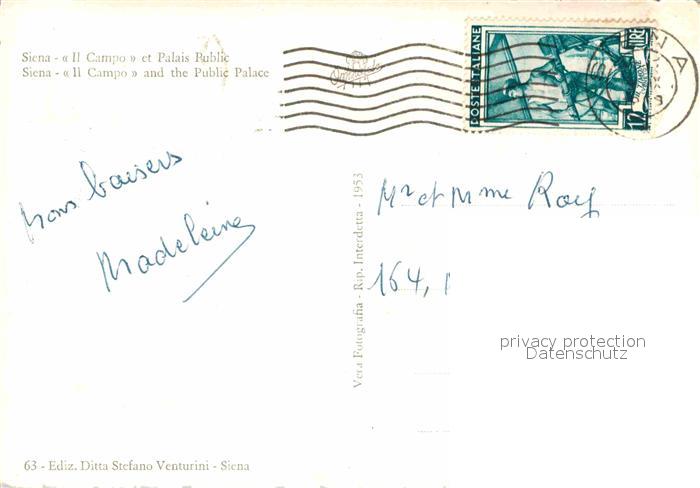 Siena - « Il Campo » et Palais Public
Siena - « Il Campo » and the Public Palace
POSTE ITALIANE
LIRE
12
baisers
Madeleine
Vera Fotografia - Rip. Interdetta - 1953
Mr et Mme Roy
164,
privacy protection
Datenschutz
63 - Ediz. Ditta Stefano Venturini - Siena